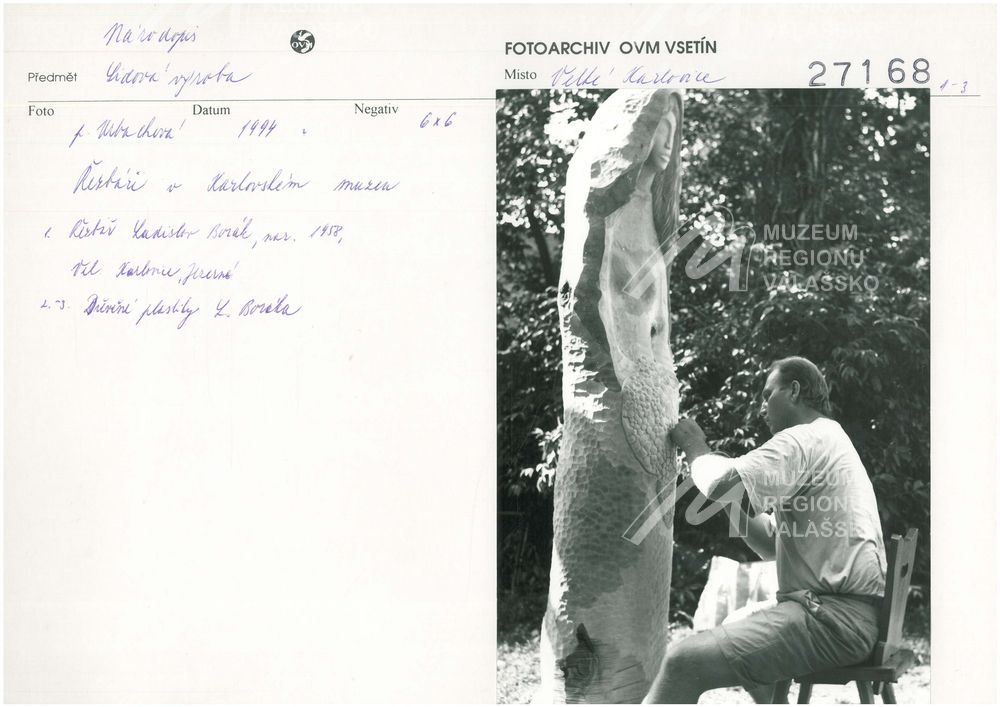 Národopis
OVM
FOTOARCHIV OVM VSETÍN
Předmět Lidová výroba
Místo Velké Karlovice
27168 1-3
Foto Datum Negativ
p. Urbachová 1994 6x6
Řezbáři v Karlovském muzeu
1. Řezbář Ladislav Borák, nar. 1958,
Vel. Karlovice, Jezerné
2.-3. Dřevěné plastiky L. Boráka
MUZEUM
REGIONU
VALAŠSKO
MUZEUM
REGIONU
VALAŠSKO